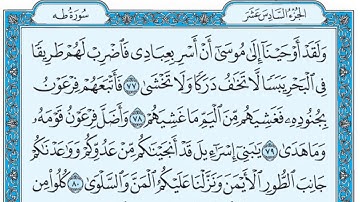 الجزء السادس عشر
سورة طه
وَلَقَدْ أَوْحَيْنَا إِلَىٰ مُوسَىٰ أَنْ أَسْرِ بِعِبَادِي فَاضْرِبْ لَهُمْ طَرِيقًا
فِي الْبَحْرِ يَبَسًا لَا تَخَافُ دَرَكًا وَلَا تَخْشَىٰ ٧٧ فَأَتْبَعَهُمْ فِرْعَوْنُ
بِجُنُودِهِ فَغَشِيَهُم مِّنَ الْيَمِّ مَا غَشِيَهُمْ ٧٨ وَأَضَلَّ فِرْعَوْنُ قَوْمَهُ
وَمَا هَدَىٰ ٧٩ يَا بَنِي إِسْرَائِيلَ قَدْ أَنجَيْنَاكُم مِّنْ عَدُوِّكُمْ وَوَاعَدْنَاكُمْ
جَانِبَ الطُّورِ الْأَيْمَنَ وَنَزَّلْنَا عَلَيْكُمُ الْمَنَّ وَالسَّلْوَىٰ ٨٠ كُلُوا مِن